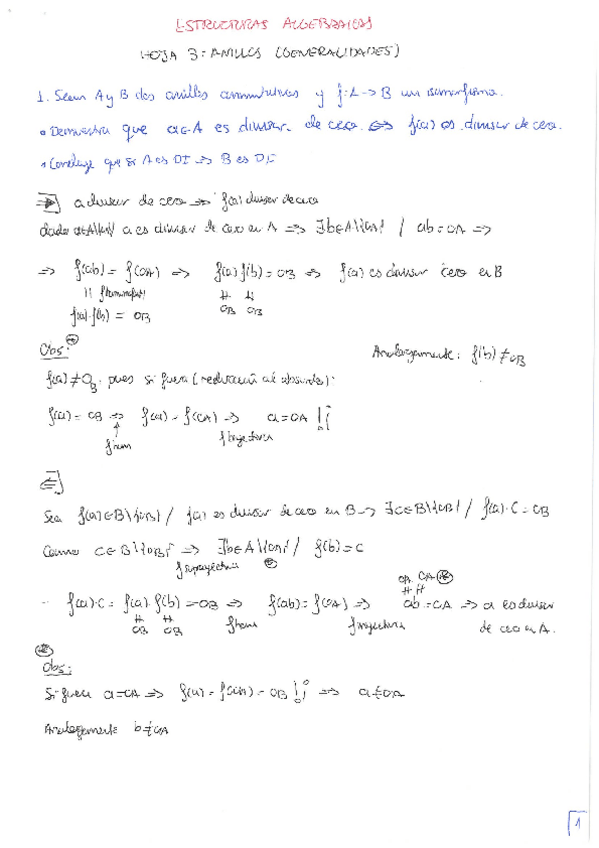 ESTRUCTURAS ALGEBRAICAS
HOJA 3: ANILLOS (GENERALIDADES)
1. Sean A y B dos anillos conmutativos y f: A -> B un isomorfismo.
• Demuestra que a∈A es divisor de cero <=> f(a) es divisor de cero.
• Concluye que si A es DI => B es DI
=>) a divisor de cero => f(a) divisor de cero
dado a∈A\{0A} a es divisor de cero en A => ∃b∈A\{0A} / ab = 0A =>
=> f(ab) = f(0A) => f(a) f(b) = 0B => f(a) es divisor cero en B
|| f homomorf. ∦ ∦
f(a)·f(b) = 0B 0B 0B
Obs: Análogamente: f(b) ≠ 0B
f(a) ≠ 0B pues si fuera (reducción al absurdo):
f(a) = 0B => f(a) = f(0A) => a = 0A !¡
f hom f inyectiva
<=)
Sea f(a)∈B\{0B} / f(a) es divisor de cero en B -> ∃c∈B\{0B} / f(a)·c = 0B
Como c∈B\{0B} => ∃b∈A\{0A} / f(b) = c
f suprayectiva
f(a)·c = f(a)·f(b) = 0B => f(ab) = f(0A) => ab = 0A => a es divisor
0B 0B f hom f inyectiva de cero en A.
Obs:
Si fuera a = 0A => f(a) = f(0A) = 0B !¡ => a ≠ 0A
Análogamente b ≠ 0A
1